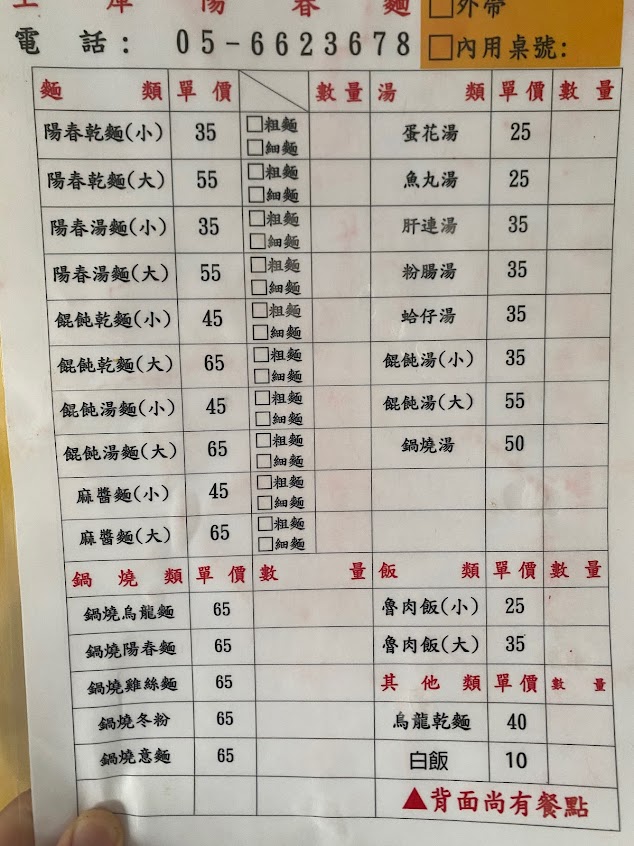 陽春麵
□外帶
電話: 05-6623678
□內用桌號:
麵類 單價 數量 湯類 單價 數量
陽春乾麵(小) 35 □粗麵 □細麵 蛋花湯 25
陽春乾麵(大) 55 □粗麵 □細麵 魚丸湯 25
陽春湯麵(小) 35 □粗麵 □細麵 肝連湯 35
陽春湯麵(大) 55 □粗麵 □細麵 粉腸湯 35
餛飩乾麵(小) 45 □粗麵 □細麵 蛤仔湯 35
餛飩乾麵(大) 65 □粗麵 □細麵 餛飩湯(小) 35
餛飩湯麵(小) 45 □粗麵 □細麵 餛飩湯(大) 55
餛飩湯麵(大) 65 □粗麵 □細麵 鍋燒湯 50
麻醬麵(小) 45 □粗麵 □細麵
麻醬麵(大) 65 □粗麵 □細麵
鍋燒類 單價 數量 飯類 單價 數量
鍋燒烏龍麵 65 魯肉飯(小) 25
鍋燒陽春麵 65 魯肉飯(大) 35
鍋燒雞絲麵 65 其他類 單價 數量
鍋燒冬粉 65 烏龍乾麵 40
鍋燒意麵 65 白飯 10
▲背面尚有餐點